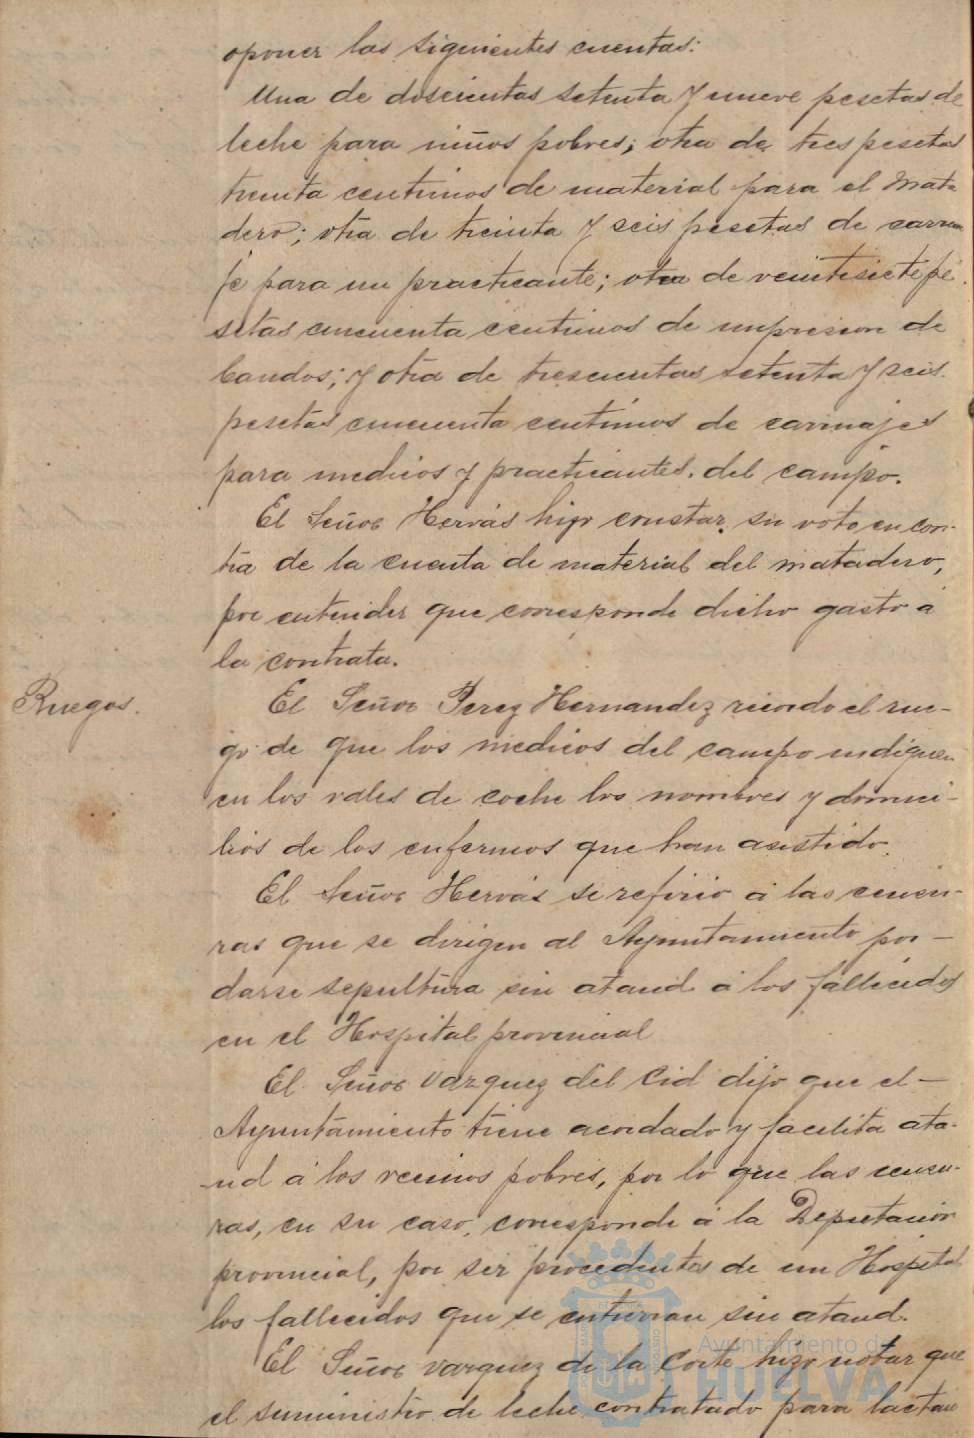 oponer las siguientes cuentas:
Una de doscientas setenta y nueve pesetas de
leche para niños pobres; otra de tres pesetas
treinta centimos de material para el Mata
dero; otra de treinta y seis pesetas de carrua
je para un practicante; otra de veintisiete pe
setas cincuenta centimos de impresion de
bandos; y otra de trescientas setenta y seis
pesetas cincuenta centimos de carruajes
para medicos y practicantes del campo.
El Señor Hervás hizo constar su voto en con-
tra de la cuenta de material del matadero,
por entender que corresponde dicho gasto á
la contrata.
Ruegos.
El Señor Perez Hernandez reiondo el rue-
go de que los medicos del campo indiquen
en los vales de coche los nombres y domici-
lios de los enfermos que han asistido.
El Señor Hervás se refirio á las censu-
ras que se dirigen al Ayuntamiento por-
darse sepultura sin ataud á los fallecidos
en el Hospital provincial
El Señor Vazquez del Cid dijo que el-
Ayuntamiento tiene acordado y facilita ata-
ud á los vecinos pobres, por lo que las censu-
ras, en su caso, corresponde á la Diputacion
provincial, por ser procedentes de un Hospital
los fallecidos que se entierran sin ataud.
El Señor Vazquez de la Corte hizo notar que
el suministro de leche contratado para lactan
Ayuntamiento de
HUELVA